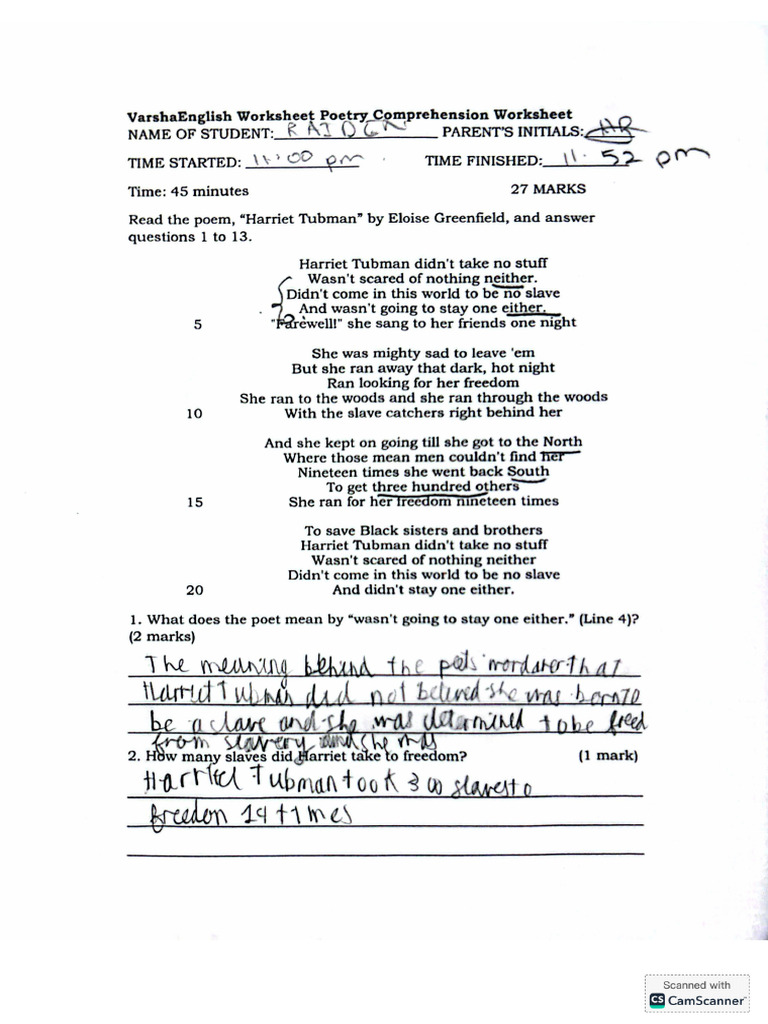 VarshaEnglish Worksheet Poetry Comprehension Worksheet
NAME OF STUDENT: RAIDEN PARENT'S INITIALS: HR
TIME STARTED: 11:00 pm TIME FINISHED: 11.52 pm
Time: 45 minutes 27 MARKS
Read the poem, “Harriet Tubman” by Eloise Greenfield, and answer
questions 1 to 13.
Harriet Tubman didn't take no stuff
Wasn't scared of nothing neither.
Didn't come in this world to be no slave
And wasn't going to stay one either.
5 "Farewell!" she sang to her friends one night
She was mighty sad to leave 'em
But she ran away that dark, hot night
Ran looking for her freedom
She ran to the woods and she ran through the woods
10 With the slave catchers right behind her
And she kept on going till she got to the North
Where those mean men couldn't find her
Nineteen times she went back South
To get three hundred others
15 She ran for her freedom nineteen times
To save Black sisters and brothers
Harriet Tubman didn't take no stuff
Wasn't scared of nothing neither
Didn't come in this world to be no slave
20 And didn't stay one either.
1. What does the poet mean by “wasn't going to stay one either.” (Line 4)?
(2 marks)
The meaning behind the poets' that
Harriet Tubman did not beleved she was born to
be a slave and she was determined to be freed
from slavery and she was
2. How many slaves did Harriet take to freedom? (1 mark)
Harriet Tubman took 300 slaves to
freedon 19 times
Scanned with
CS CamScanner